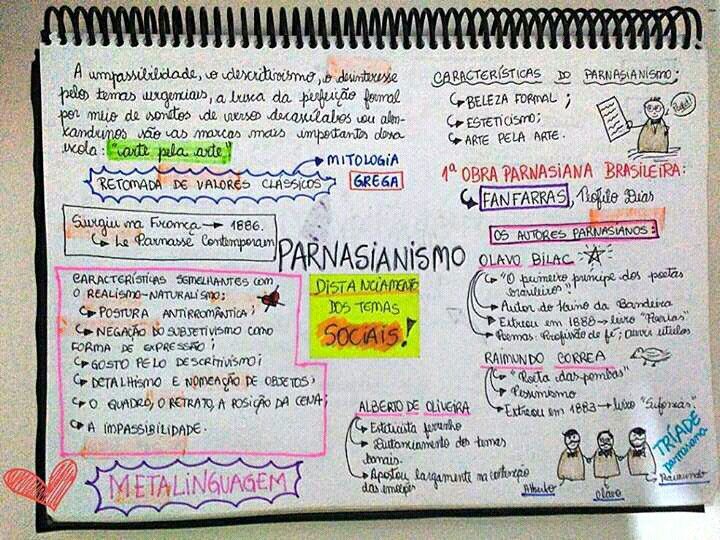 A impassibilidade, o descritivismo, o desinteresse
pelos temas urgenciais, a busca da perfeição formal
por meio de sonetos de versos decassílabos ou ale-
xandrinos são as marcas mais importantes dessa
escola: "arte pela arte"
RETOMADA DE VALORES CLÁSSICOS
MITOLOGIA
GREGA
Surgiu na França → 1886.
Le Parnasse Contemporam
CARACTERÍSTICAS SEMELHANTES COM
O REALISMO-NATURALISMO:
POSTURA ANTIRROMÂNTICA;
NEGAÇÃO DO SUBJETIVISMO COMO
FORMA DE EXPRESSÃO;
GOSTO PELO DESCRITIVISMO;
DETALHISMO E NOMEAÇÃO DE OBJETOS;
O QUADRO, O RETRATO, A POSIÇÃO DA CENA;
A IMPASSIBILIDADE.
METALINGUAGEM
PARNASIANISMO
DISTANCIAMENTO
DOS TEMAS
SOCIAIS!
ALBERTO DE OLIVEIRA
Esteticista ferrenho
Distanciamento dos temas
banais.
Apostou largamente na contenção
das emoções
CARACTERÍSTICAS DO PARNASIANISMO:
BELEZA FORMAL;
ESTETICISMO;
ARTE PELA ARTE.
1ª OBRA PARNASIANA BRASILEIRA:
FANFARRAS, Teófilo Dias
OS AUTORES PARNASIANOS:
OLAVO BILAC
"O primeiro príncipe dos poetas
brasileiros"
Autor do Hino da Bandeira
Estreou em 1888 → livro "Poesias"
Poemas: Profissão de fé; Ouvir estrelas
RAIMUNDO CORREA
"Poeta das pombas"
Pessimismo
Estreou em 1883 → livro "Sinfonias"
TRÍADE
parnasiana
Alberto
Olavo
Raimundo